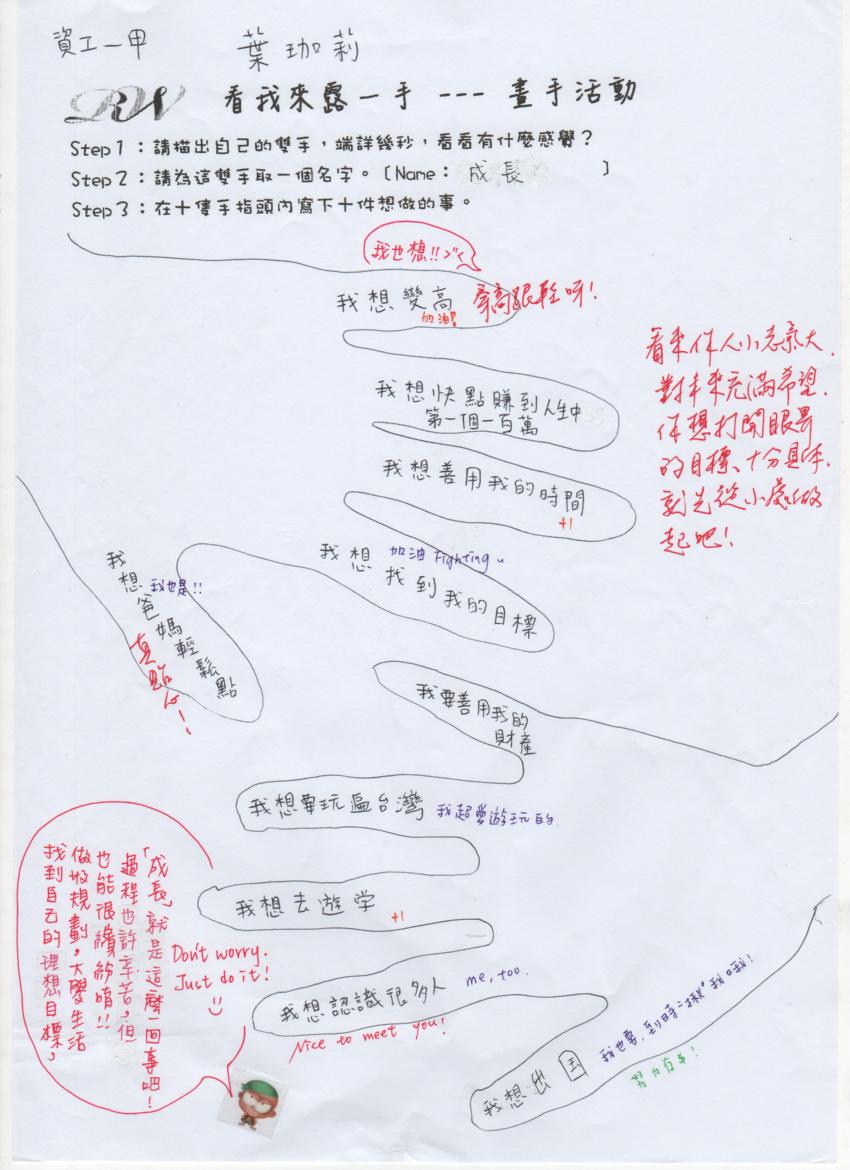 資工一甲 葉珈莉
RW 看我來露一手 --- 畫手活動
Step1：請描出自己的雙手，端詳幾秒，看看有什麼感覺？
Step2：請為這雙手取一個名字。〔Name： 成長 〕
Step3：在十隻手指頭內寫下十件想做的事。
我也想!!
我想變高
穿高跟鞋呀!
的油!
我想快點賺到人生中
第一個一百萬
我想善用我的時間
+1
看來你人小志氣大.
對未來充滿希望.
你想打開眼界
的目標、十分具体.
就先從小處做
起吧!
我想
加油 Fighting
找到我的目標
我想爸媽輕鬆點
我也是!!
真貼心!
我要善用我的
財產
我想要玩遍台灣
我超愛遊玩的.
我想去遊学
+1
「成長」就是這麼一回事吧!
過程也許辛苦，但
也能很繽紛唷!!
做好規劃，大學生活
找到自己的理想目標，
Don't worry.
Just do it!
我想認識很多人
me, too.
Nice to meet you!
我想出国
我也要，到時
努力存